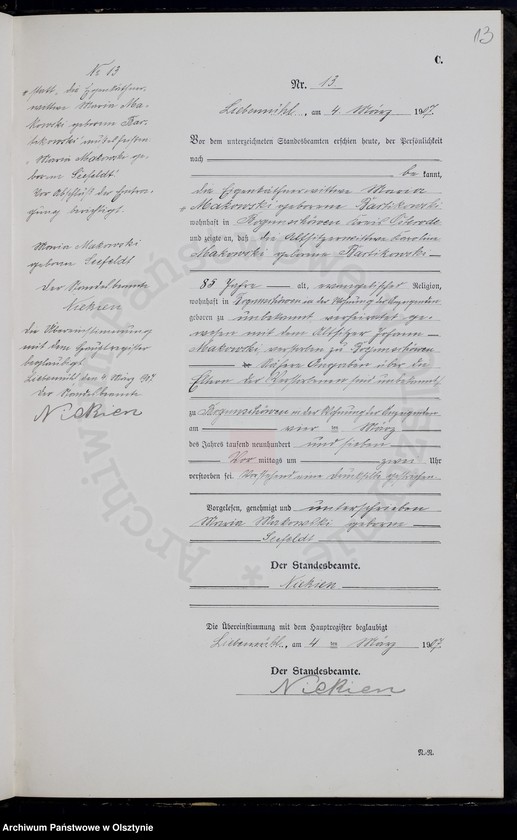 13
C.
No 13
statt, die Eigenkäthner-
wittwe Maria Ma-
kowski geborene Bar-
tikowski muß es heißen
„Maria Makowski ge-
borene Seefeldt“
Vor Abschluß der Eintra-
gung berichtigt.
Maria Makowski
geborene Seefeldt
Der Standesbeamte
Nickien
Die Übereinstimmung
mit dem Hauptregister
beglaubigt
Liebemühl den 4. März 1907
Der Standesbeamte
Nickien
Nr. 13
Liebemühl, am 4 März 1907.
Vor dem unterzeichneten Standesbeamten erschien heute, der Persönlichkeit
nach
be kannt,
die Eigenkäthnerwittwe Maria
Makowski geborene Bartikowski
wohnhaft in Kreis Osterode
und zeigte an, daß die Altsitzerwittwe Karoline
Makowski geborene Bartikowski
85 Jahre alt, evangelischer Religion,
wohnhaft in in der Wohnung der Anzeigenden
geboren zu unbekannt verheiratet ge-
wesen mit dem Altsitzer Johann
Makowski, verstorben zu
Nähere Angaben über die
Eltern der Verstorbenen sind unbekannt
zu in der Wohnung der Anzeigenden
am vier ten März
des Jahres tausend neunhundert und sieben
Vor mittags um zwei Uhr
verstorben sei. Vorstehend eine Druckstelle gestrichen.
Vorgelesen, genehmigt und unterschrieben
Maria Makowski geborene
Seefeldt
Der Standesbeamte.
Nickien
Die Übereinstimmung mit dem Hauptregister beglaubigt
Liebemühl, am 4 ten März 1907.
Der Standesbeamte.
Nickien
N.-N.
Archiwum Państwowe w Olsztynie